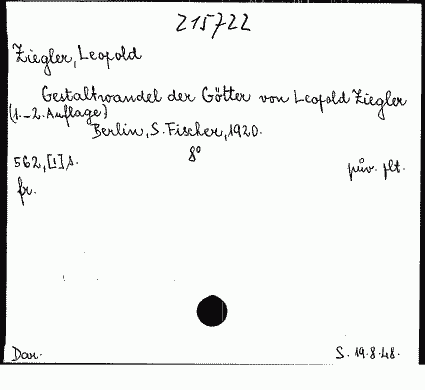 215722
Ziegler, Leopold
Gestaltwandel der Götter von Leopold Ziegler
(1.-2. Auflage)
Berlin, S. Fischer, 1920.
562, [1] s. 8° pův. plt.
fr.
Dar. S. 19.8.48.